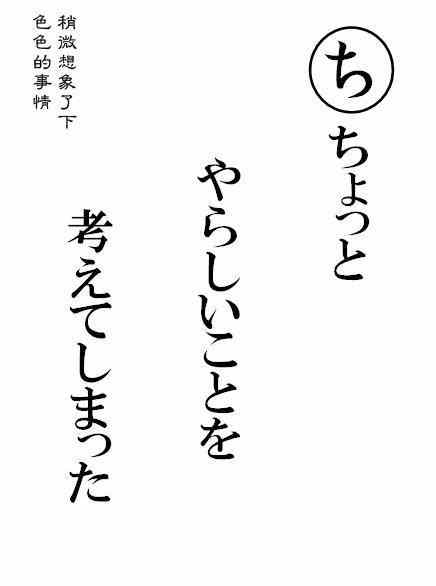 ち
ちょっと
やらしいことを
考えてしまった
稍微想象了下
色色的事情